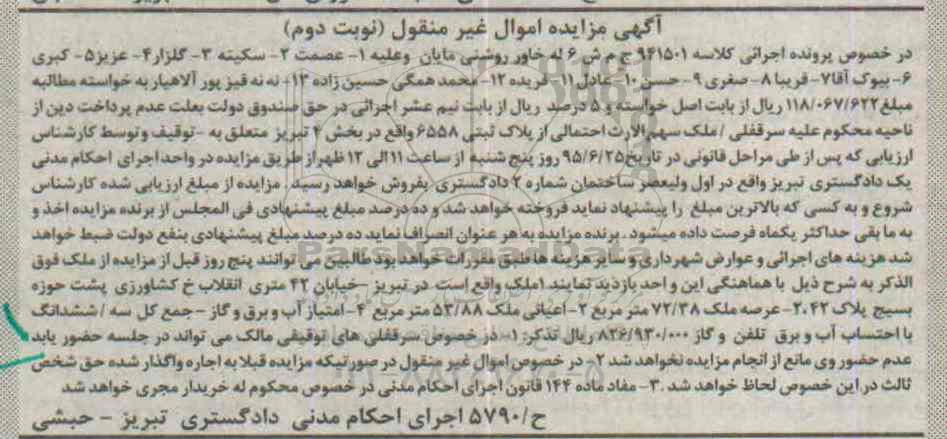 آگهی مزایده اموال غیر منقول (نوبت دوم)
در خصوص پرونده اجرائی کلاسه ۹۴۱۵۰۱ ج م ش ۶ له خاور روشنی مایان وعلیه ۱- عصمت ۲- سکینه ۳- گلزار ۴- عزیز ۵- کبری
۶- بیوک آقا ۷- فریبا ۸- صغری ۹- حسن ۱۰- عادل ۱۱- فریده ۱۲- محمد همگی حسین زاده ۱۳- ننه قیز پور آلاهیار به خواسته مطالبه
مبلغ ۱۱۸/۰۶۷/۶۲۲ ریال از بابت اصل خواسته و ۵ درصد ریال از بابت نیم عشر اجرائی در حق صندوق دولت بعلت عدم پرداخت دین از
ناحیه محکوم علیه سرقفلی / ملک سهم الارث احتمالی از پلاک ثبتی ۶۵۵۸ واقع در بخش ۴ تبریز متعلق به - توقیف و توسط کارشناس
ارزیابی که پس از طی مراحل قانونی در تاریخ ۹۵/۶/۲۵ روز پنج شنبه از ساعت ۱۱ الی ۱۲ ظهر از طریق مزایده در واحد اجرای احکام مدنی
یک دادگستری تبریز واقع در اول ولیعصر ساختمان شماره ۲ دادگستری بفروش خواهد رسید . مزایده از مبلغ ارزیابی شده کارشناس
شروع و به کسی که بالاترین مبلغ را پیشنهاد نماید فروخته خواهد شد و ده درصد مبلغ پیشنهادی فی المجلس از برنده مزایده اخذ و
به مابقی حداکثر یکماه فرصت داده میشود . برنده مزایده به هر عنوان انصراف نماید ده درصد مبلغ پیشنهادی بنفع دولت ضبط خواهد
شد هزینه های اجرائی و عوارض شهرداری و سایر هزینه ها طبق مقررات خواهد بود طالبین می توانند پنج روز قبل از مزایده از ملک فوق
الذکر به شرح ذیل با هماهنگی این واحد بازدید نمایند ۱ملک واقع است در تبریز - خیابان ۴۲ متری انقلاب خ کشاورزی پشت حوزه
بسیج پلاک ۲،۴۲- عرصه ملک ۷۲/۳۸ متر مربع ۲- اعیانی ملک ۵۳/۸۸ متر مربع ۴- امتیاز آب و برق و گاز - جمع کل سه / ششدانگ
با احتساب آب و برق تلفن و گاز ۸۲۶/۹۳۰/۰۰۰ ریال تذکر: ۱- در خصوص سرقفلی های توقیفی مالک می تواند در جلسه حضور یابد
عدم حضور وی مانع از انجام مزایده نخواهد شد ۲- در خصوص اموال غیر منقول در صورتیکه مزایده قبلا به اجاره واگذار شده حق شخص
ثالث در این خصوص لحاظ خواهد شد .۳- مفاد ماده ۱۴۴ قانون اجرای احکام مدنی در خصوص محکوم له خریدار مجری خواهد شد
ح/۵۷۹۰ اجرای احکام مدنی دادگستری تبریز - حبشی
ParsNamadData